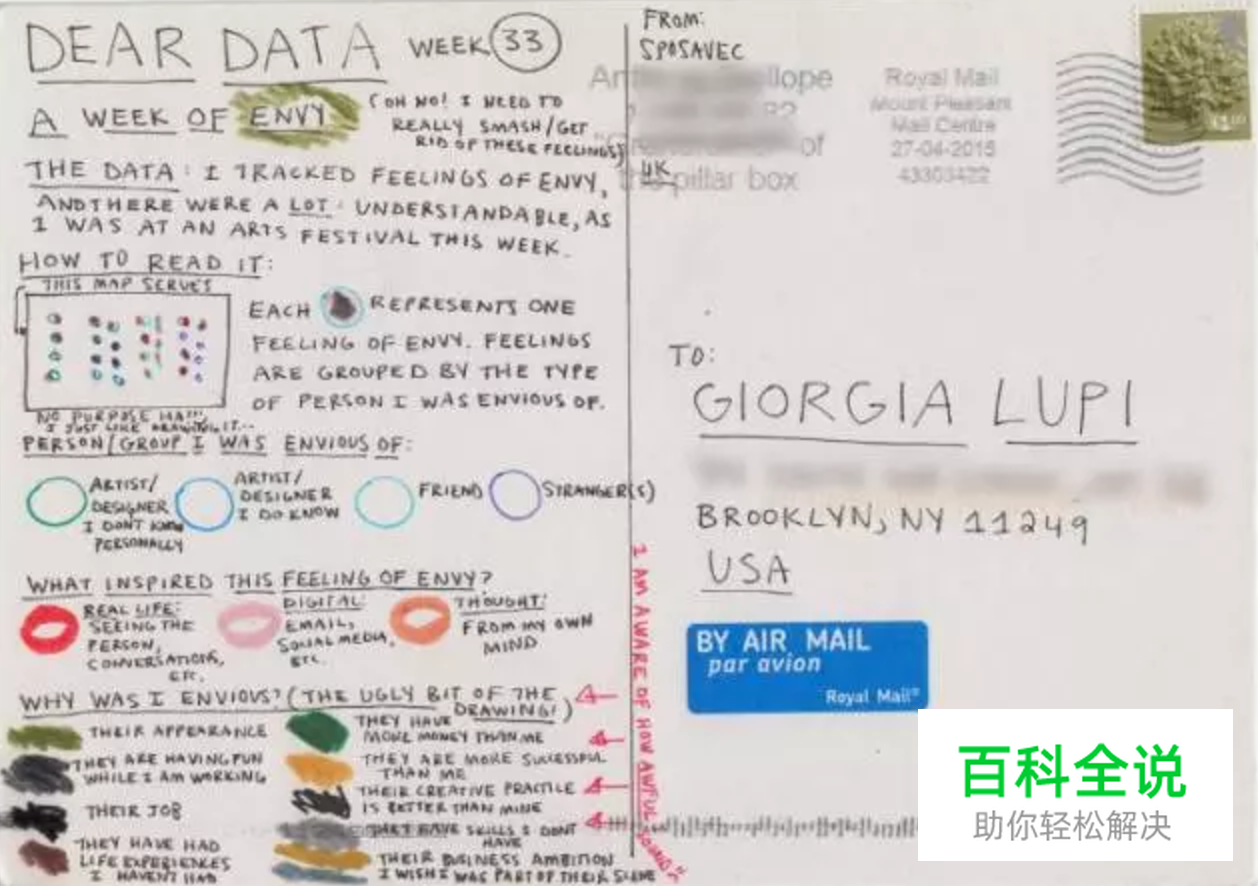 DEAR DATA WEEK 33
A WEEK OF ENVY
(OH NO! I NEED TO
REALLY SMASH/GET
RID OF THESE FEELINGS)
THE DATA: I TRACKED FEELINGS OF ENVY,
AND THERE WERE A LOT. UNDERSTANDABLE, AS
I WAS AT AN ARTS FESTIVAL THIS WEEK.
HOW TO READ IT:
THIS MAP SERVES
NO PURPOSE HA!!!
I JUST LIKE DRAWING IT...
EACH REPRESENTS ONE
FEELING OF ENVY. FEELINGS
ARE GROUPED BY THE TYPE
OF PERSON I WAS ENVIOUS OF.
PERSON/GROUP I WAS ENVIOUS OF:
ARTIST/
DESIGNER
I DONT KNOW
PERSONALLY
ARTIST/
DESIGNER
I DO KNOW
FRIEND
STRANGER(S)
WHAT INSPIRED THIS FEELING OF ENVY?
REAL LIFE:
SEEING THE
PERSON,
CONVERSATIONS,
ETC.
DIGITAL:
EMAIL,
SOCIAL MEDIA,
ETC.
THOUGHT:
FROM MY OWN
MIND
WHY WAS I ENVIOUS? (THE UGLY BIT OF THE
DRAWING!)
THEIR APPEARANCE
THEY ARE HAVING FUN
WHILE I AM WORKING
THEIR JOB
THEY HAVE HAD
LIFE EXPERIENCES
I HAVENT HAD
THEY HAVE
MORE MONEY THAN ME
THEY ARE MORE SUCCESSFUL
THAN ME
THEIR CREATIVE PRACTICE
IS BETTER THAN MINE
THEY HAVE SKILLS I DONT
HAVE
THEIR BUSINESS AMBITION
I WISH I WAS PART OF THEIR SCENE
I AM AWARE OF HOW AWFUL I SOUND
FROM:
SPOSAVEC
UK
of
pillar box
Royal Mail
Mount Pleasant
Mail Centre
27-04-2015
43303422
TO:
GIORGIA LUPI
BROOKLYN, NY 11249
USA
BY AIR MAIL
par avion
Royal Mail®
百科全说
助你轻松解决